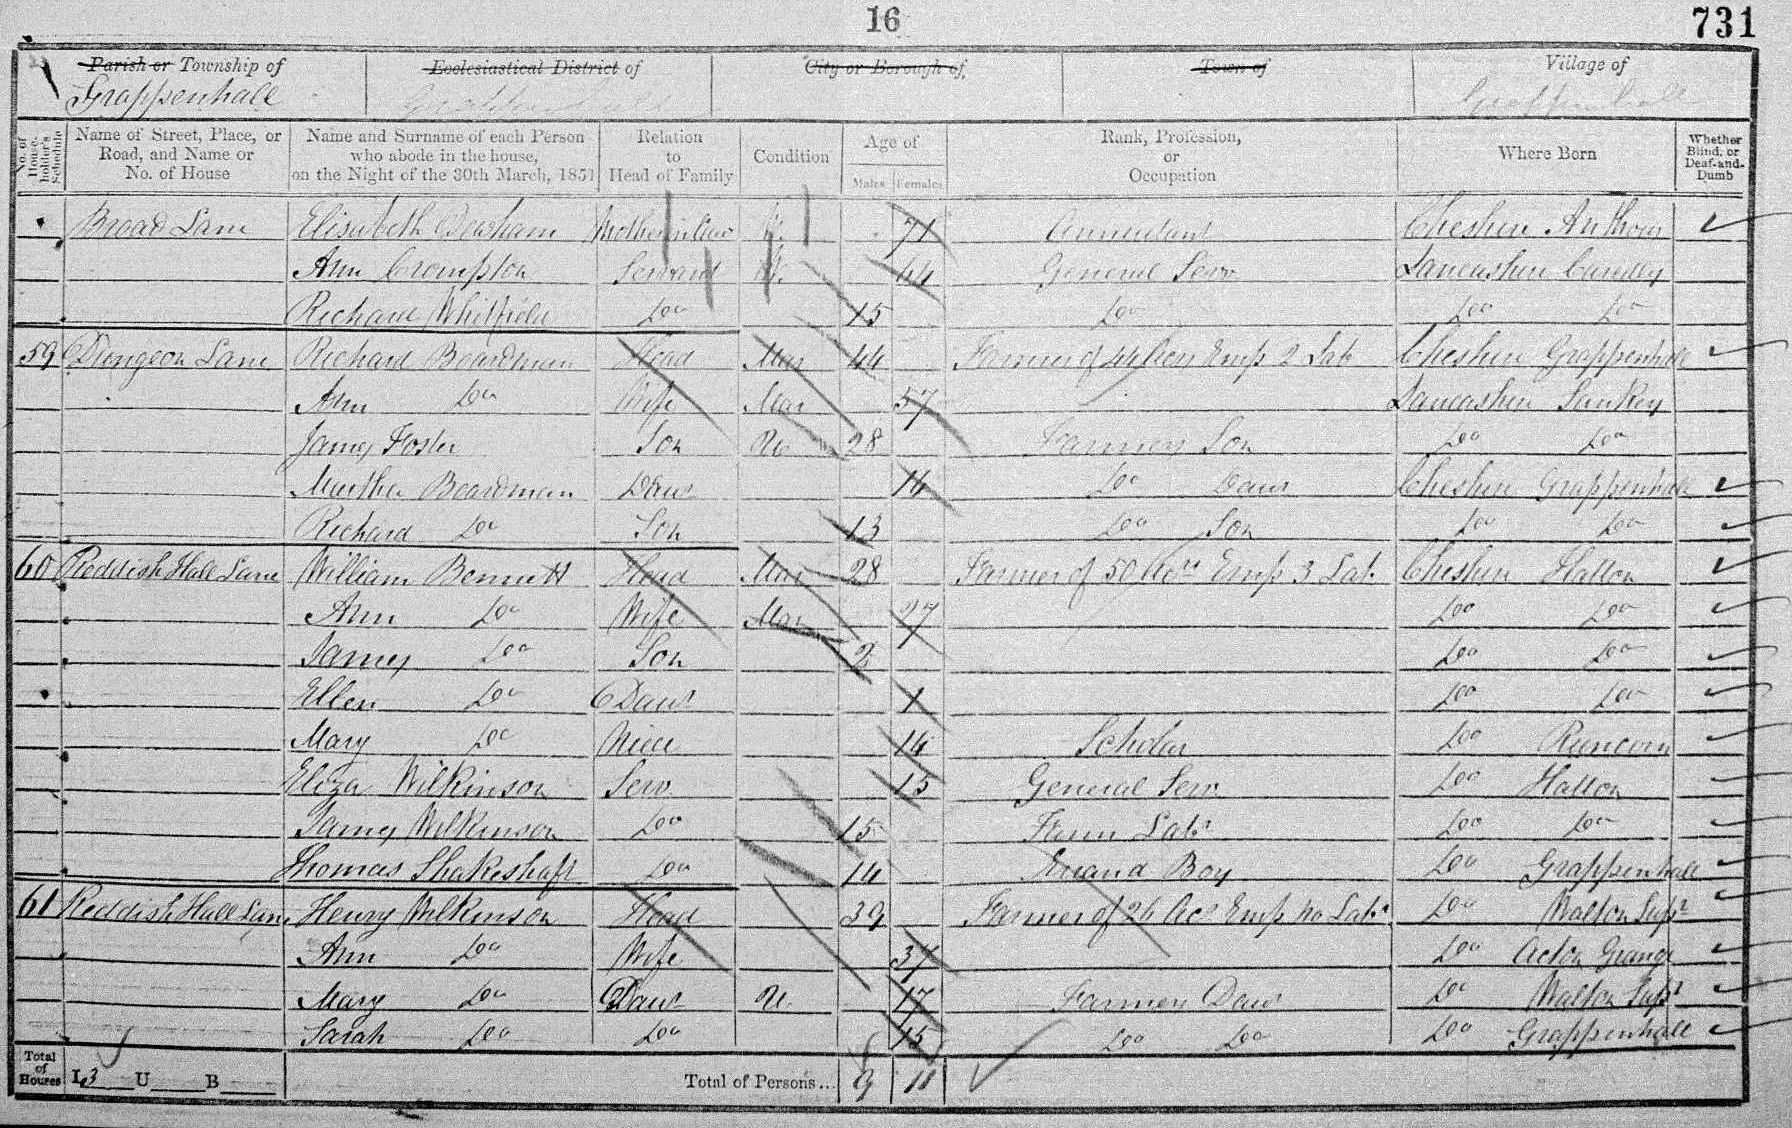 16
731
Parish or Township of Ecclesiastical District of City or Borough of Town of Village of
Grappenhall Grappenhall Grappenhall
No. of House-holder's Schedule
Name of Street, Place, or Road, and Name or No. of House
Name and Surname of each Person who abode in the house, on the Night of the 30th March, 1851
Relation to Head of Family
Condition
Age of
Males Females
Rank, Profession, or Occupation
Where Born
Whether Blind, or Deaf-and-Dumb
Broad Lane Elisabeth Mother in law 71 Annuitant Cheshire
Ann Crompton Servant 44 General Serv Lancashire
Richard Whitfield Do 15 Do Do Do
59 Dungeon Lane Richard Boardman Head Mar 44 Farmer of 44 Acres Emp 2 Lab Cheshire Grappenhall
Ann Do Wife Mar 57 Lancashire Sankey
James Foster Son Un 28 Farmers Son Do Do
Martha Boardman Daur 14 Do Daur Cheshire Grappenhall
Richard Do Son 13 Do Son Do Do
60 Reddish Hall Lane William Bennett Head Mar 28 Farmer of 50 Acrs Emp 3 Lab. Cheshire Halton
Ann Do Wife Mar 27 Do Do
James Do Son 2 Do Do
Ellen Do Daur 1 Do Do
Mary Do Niece 14 Scholar Do Runcorn
Eliza Wilkinson Serv. 15 General Serv Do Halton
James Wilkinson Do 15 Farm Labr Do Do
Thomas Shakeshaft Do 14 Errand Boy Do Grappenhall
61 Reddish Hall Lane Henry Wilkinson Head 39 Farmer of 26 Acs Emp no Labr Do Walton Supr
Ann Do Wife 37 Do Acton Grange
Mary Do Daur U. 17 Farmers Daur Do Walton Supr
Sarah Do Do 15 Do Do Do Grappenhall
Total of Houses I 3 U B Total of Persons... 9 11